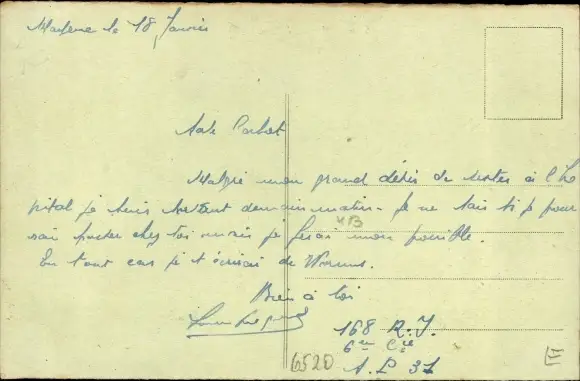 le 18 Janvier
Malgré mon grand désir de rester à l'ho
pital je suis sortant demain matin. Je ne sais si je pour
rai passer chez toi mais je ferai mon possible.
En tout cas je t'écrirai de Worms.
Bien à toi
168 R.I.
6em Cie
S.P. 37
6520